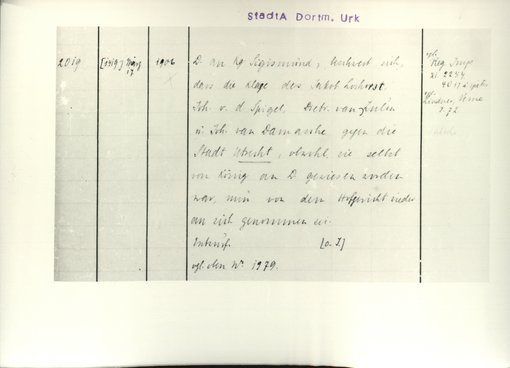 StadtA Dortm. Urk
2019
[1419] März
17
1902
D. an Kg Sigismund, beschwert sich,
dass die Klage des Jakob Lichterst
Joh. v. d. Spigel, Dietr. van Zuilen
u. Joh. van Damasche gegen die
Stadt Utrecht, obwohl sie selbst
vom König an D. gewiesen worden
war, nun von dem Hofgericht wieder
an sich genommen sei.
Entwurf. [o. J.]
vgl. oben Nr. 1979.
vgl.
Reg. Imp.
XI. 2244
4017
vgl.
Lindner, Veme